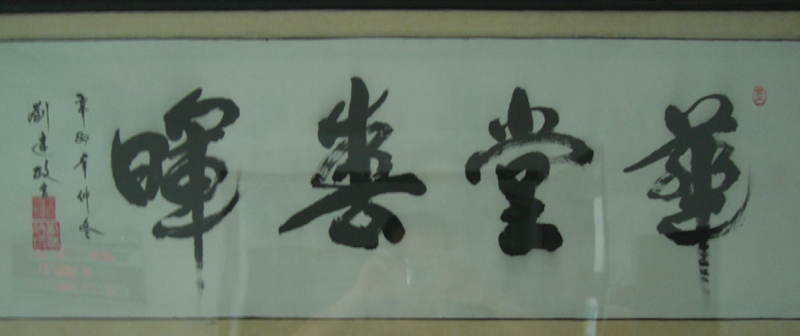 華堂春暉
辛卯年仲冬
劉建